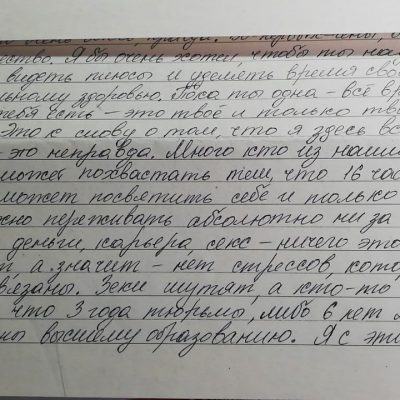 нство. Я бы очень хотел, чтобы ты нау
видеть плюсы и уделять время сво
льному здоровью. Пока ты одна - всё вр
тебя есть - это твоё и только тво
Это к слову о том, что я здесь вс
- это неправда. Много кто из наши
может похвастать тем, что 16 час
может посвятить себе и только
жно переживать абсолютно ни за
деньги, карьера, секс - ничего это
т, а значит - нет стрессов, кото
вязаны. Зеки шутят, а кто-то
что 3 года тюрьмы, либо 6 лет
ны высшему образованию. Я с эти